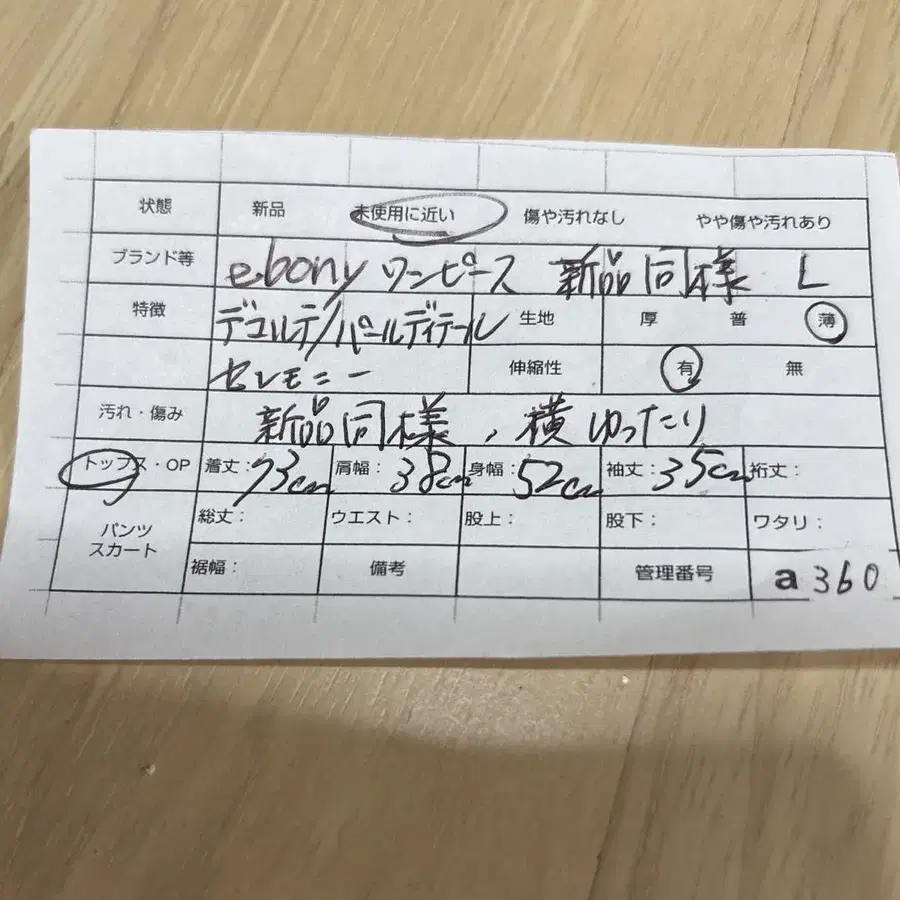 状態 新品 未使用に近い 傷や汚れなし やや傷や汚れあり
ブランド等 ebony ワンピース 新品同様 L
特徴 デコルテ/パールディテール 生地 厚 普 薄
セレモニー 伸縮性 有 無
汚れ・傷み 新品同様、横ゆったり
トップス・OP 着丈:73cm 肩幅:38cm 身幅:52cm 袖丈:35cm 裄丈:
パンツ スカート 総丈: ウエスト: 股上: 股下: ワタリ:
裾幅: 備考 管理番号 a360